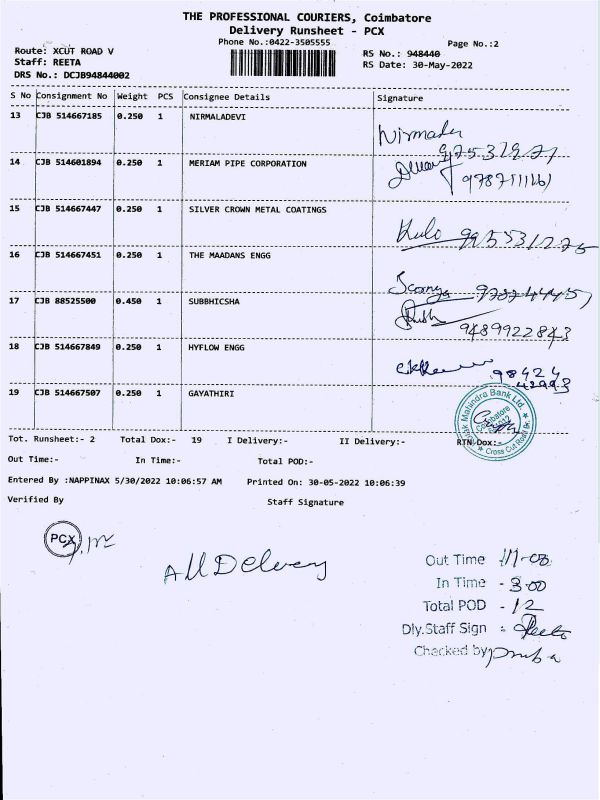 THE PROFESSIONAL COURIERS, Coimbatore
Delivery Runsheet - PCX
Phone No.:0422-3505555
Page No.:2
Route: XCUT ROAD V
RS No.: 948440
Staff: REETA
RS Date: 30-May-2022
DRS No.: DCJB94844002
S No Consignment No Weight PCS Consignee Details Signature
13 CJB 514667185 0.250 1 NIRMALADEVI
14 CJB 514601894 0.250 1 MERIAM PIPE CORPORATION
15 CJB 514667447 0.250 1 SILVER CROWN METAL COATINGS
16 CJB 514667451 0.250 1 THE MAADANS ENGG
17 CJB 88525500 0.450 1 SUBBHICSHA
9489922843
18 CJB 514667849 0.250 1 HYFLOW ENGG
98424
19 CJB 514667507 0.250 1 GAYATHIRI
Mahindra Bank Ltd.
Coimbatore
Cross Cut Road Br.
Tot. Runsheet:- 2 Total Dox:- 19 I Delivery:- II Delivery:- RTN Dox:-
Out Time:- In Time:- Total POD:-
Entered By :NAPPINAX 5/30/2022 10:06:57 AM Printed On: 30-05-2022 10:06:39
Verified By Staff Signature
PCX
All Delivery
Out Time
In Time - 3.00
Total POD - 12
Dly.Staff Sign : Reeta
Checked by